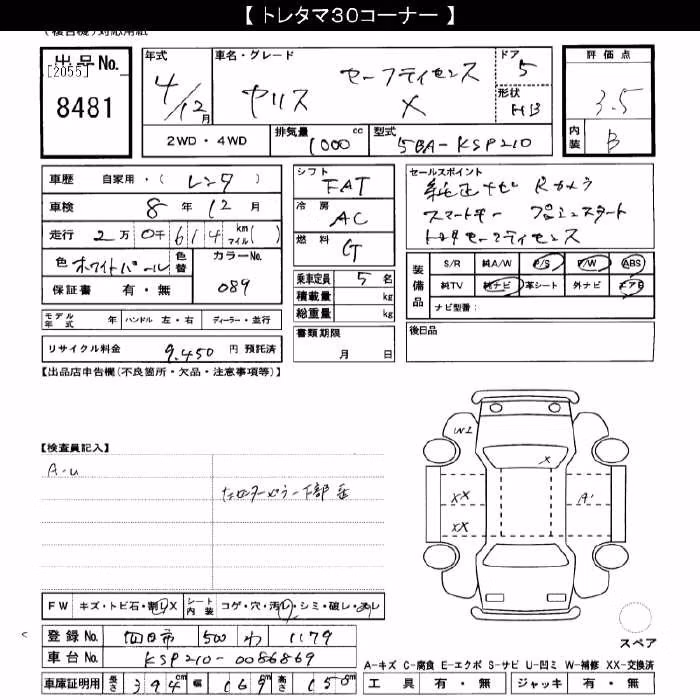 【 トレタマ30コーナー 】
出品No.
[2055]
8481
年式
4/12月
車名・グレード
ヤリス セーフティセンス X
ドア
5
形状
HB
評価点
3.5
内装
B
2WD・4WD
排気量
1000 cc
型式
5BA-KSP210
車歴 自家用・( レンタ )
車検 8 年 12 月
走行 2万 0千 614 km マイル( )
色 ホワイトパール 色替
カラーNo.
089
保証書 有・無
シフト
FAT
冷房
AC
燃料
G
乗車定員 5 名
積載量 kg
総重量 kg
セールスポイント
純正ナビ Rカメラ
スマートキー プッシュスタート
トヨタセーフティセンス
装備品
S/R 純A/W P/S P/W ABS
純TV 純ナビ 革シート 外ナビ エアB
ナビ型番:
モデル年式 年 ハンドル 左・右 ディーラー・並行
リサイクル料金 9,450 円 預託済
書類期限
月 日
後日品
【出品店申告欄(不良箇所・欠品・注意事項等)】
【検査員記入】
A-U
W1
X
XX
XX
A'
FW キズ・トビ石・割レX シート内装 コゲ・穴・汚レ・シミ・破レ・スレ
登録No. 四日市 500 わ 1179
車台No. KSP210-0086869
車庫証明用 長さ 394cm 幅 169cm 高さ 150cm
スペア
A-キズ C-腐食 E-エクボ S-サビ U-凹ミ W-補修 XX-交換済
工具 有・無 ジャッキ 有・無